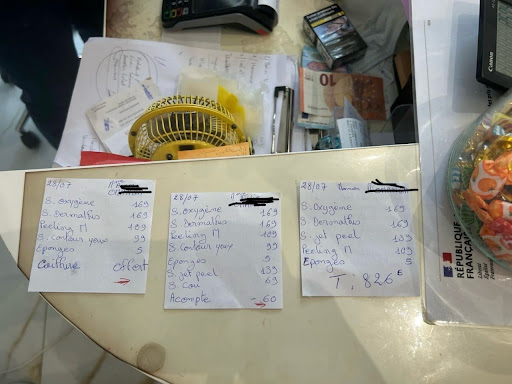 28/07
S. Oxygène 169
S. Dermathus 169
Peeling M 109
S. Contour yeux 99
Eponges 5
Coiffure offert
28/07
S. oxygène 169
S. Dermathus 169
Peeling M 109
S. Contour yeux 99
Eponges 5
S. jet peel 139
S. Cou 69
Acompte - 60
28/07
S. Oxygène 169
S. Dermathus 169
S. jet peel 139
Peeling M 109
Eponges 5
T. 826 €
10
Canon
RÉPUBLIQUE
FRANÇAISE
Liberté
Égalité
Fraternité